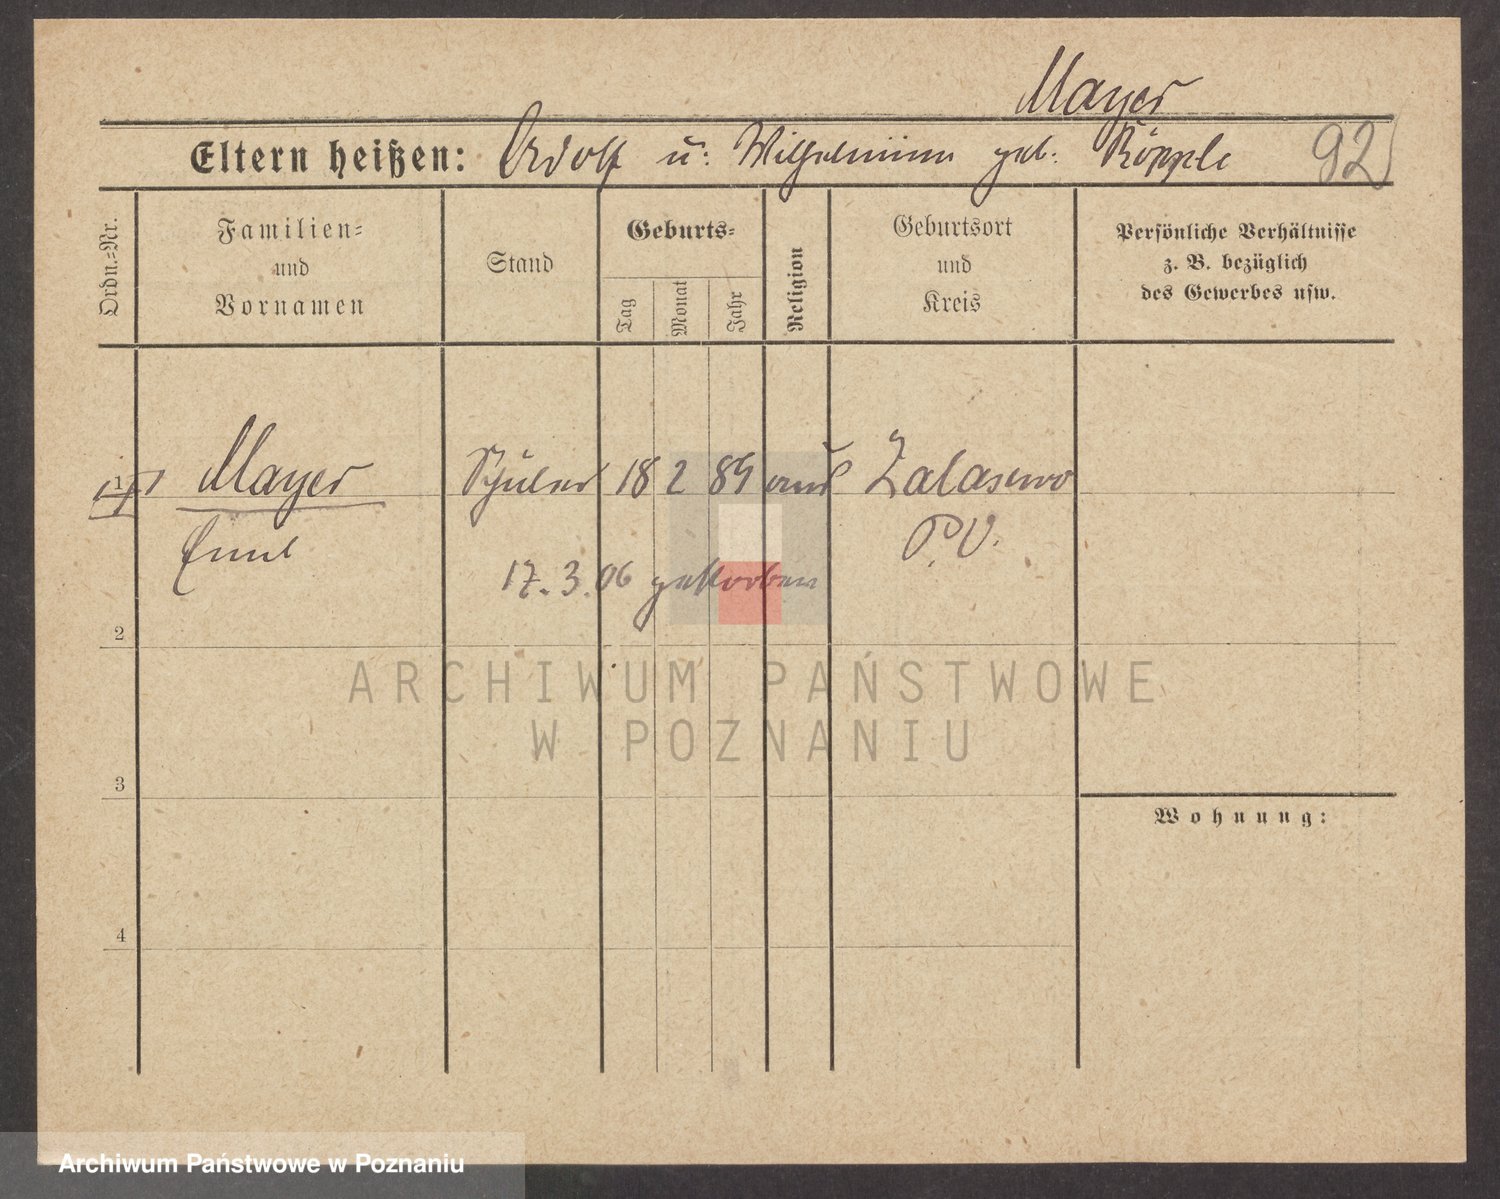 Mayer
Eltern heißen: Adolf u: Wilhelmine geb. Röppele
92
Ordn.-Nr.
Familien-
und
Vornamen
Stand
Geburts-
Tag
Monat
Jahr
Religion
Geburtsort
und
Kreis
Persönliche Verhältnisse
z. B. bezüglich
des Gewerbes usw.
1 Mayer Schüler 18 2 89 Zalasewo
Emil P. O.
17. 3. 06 gestorben
2
3
4
Wohnung:
ARCHIWUM PAŃSTWOWE
W POZNANIU
Archiwum Państwowe w Poznaniu